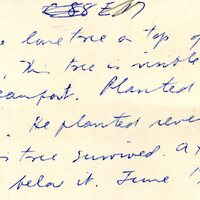 e lone tree on top of
. This tree is visible
eaufort. Planted
. He planted seve
is tree survived. A
below it. June 1